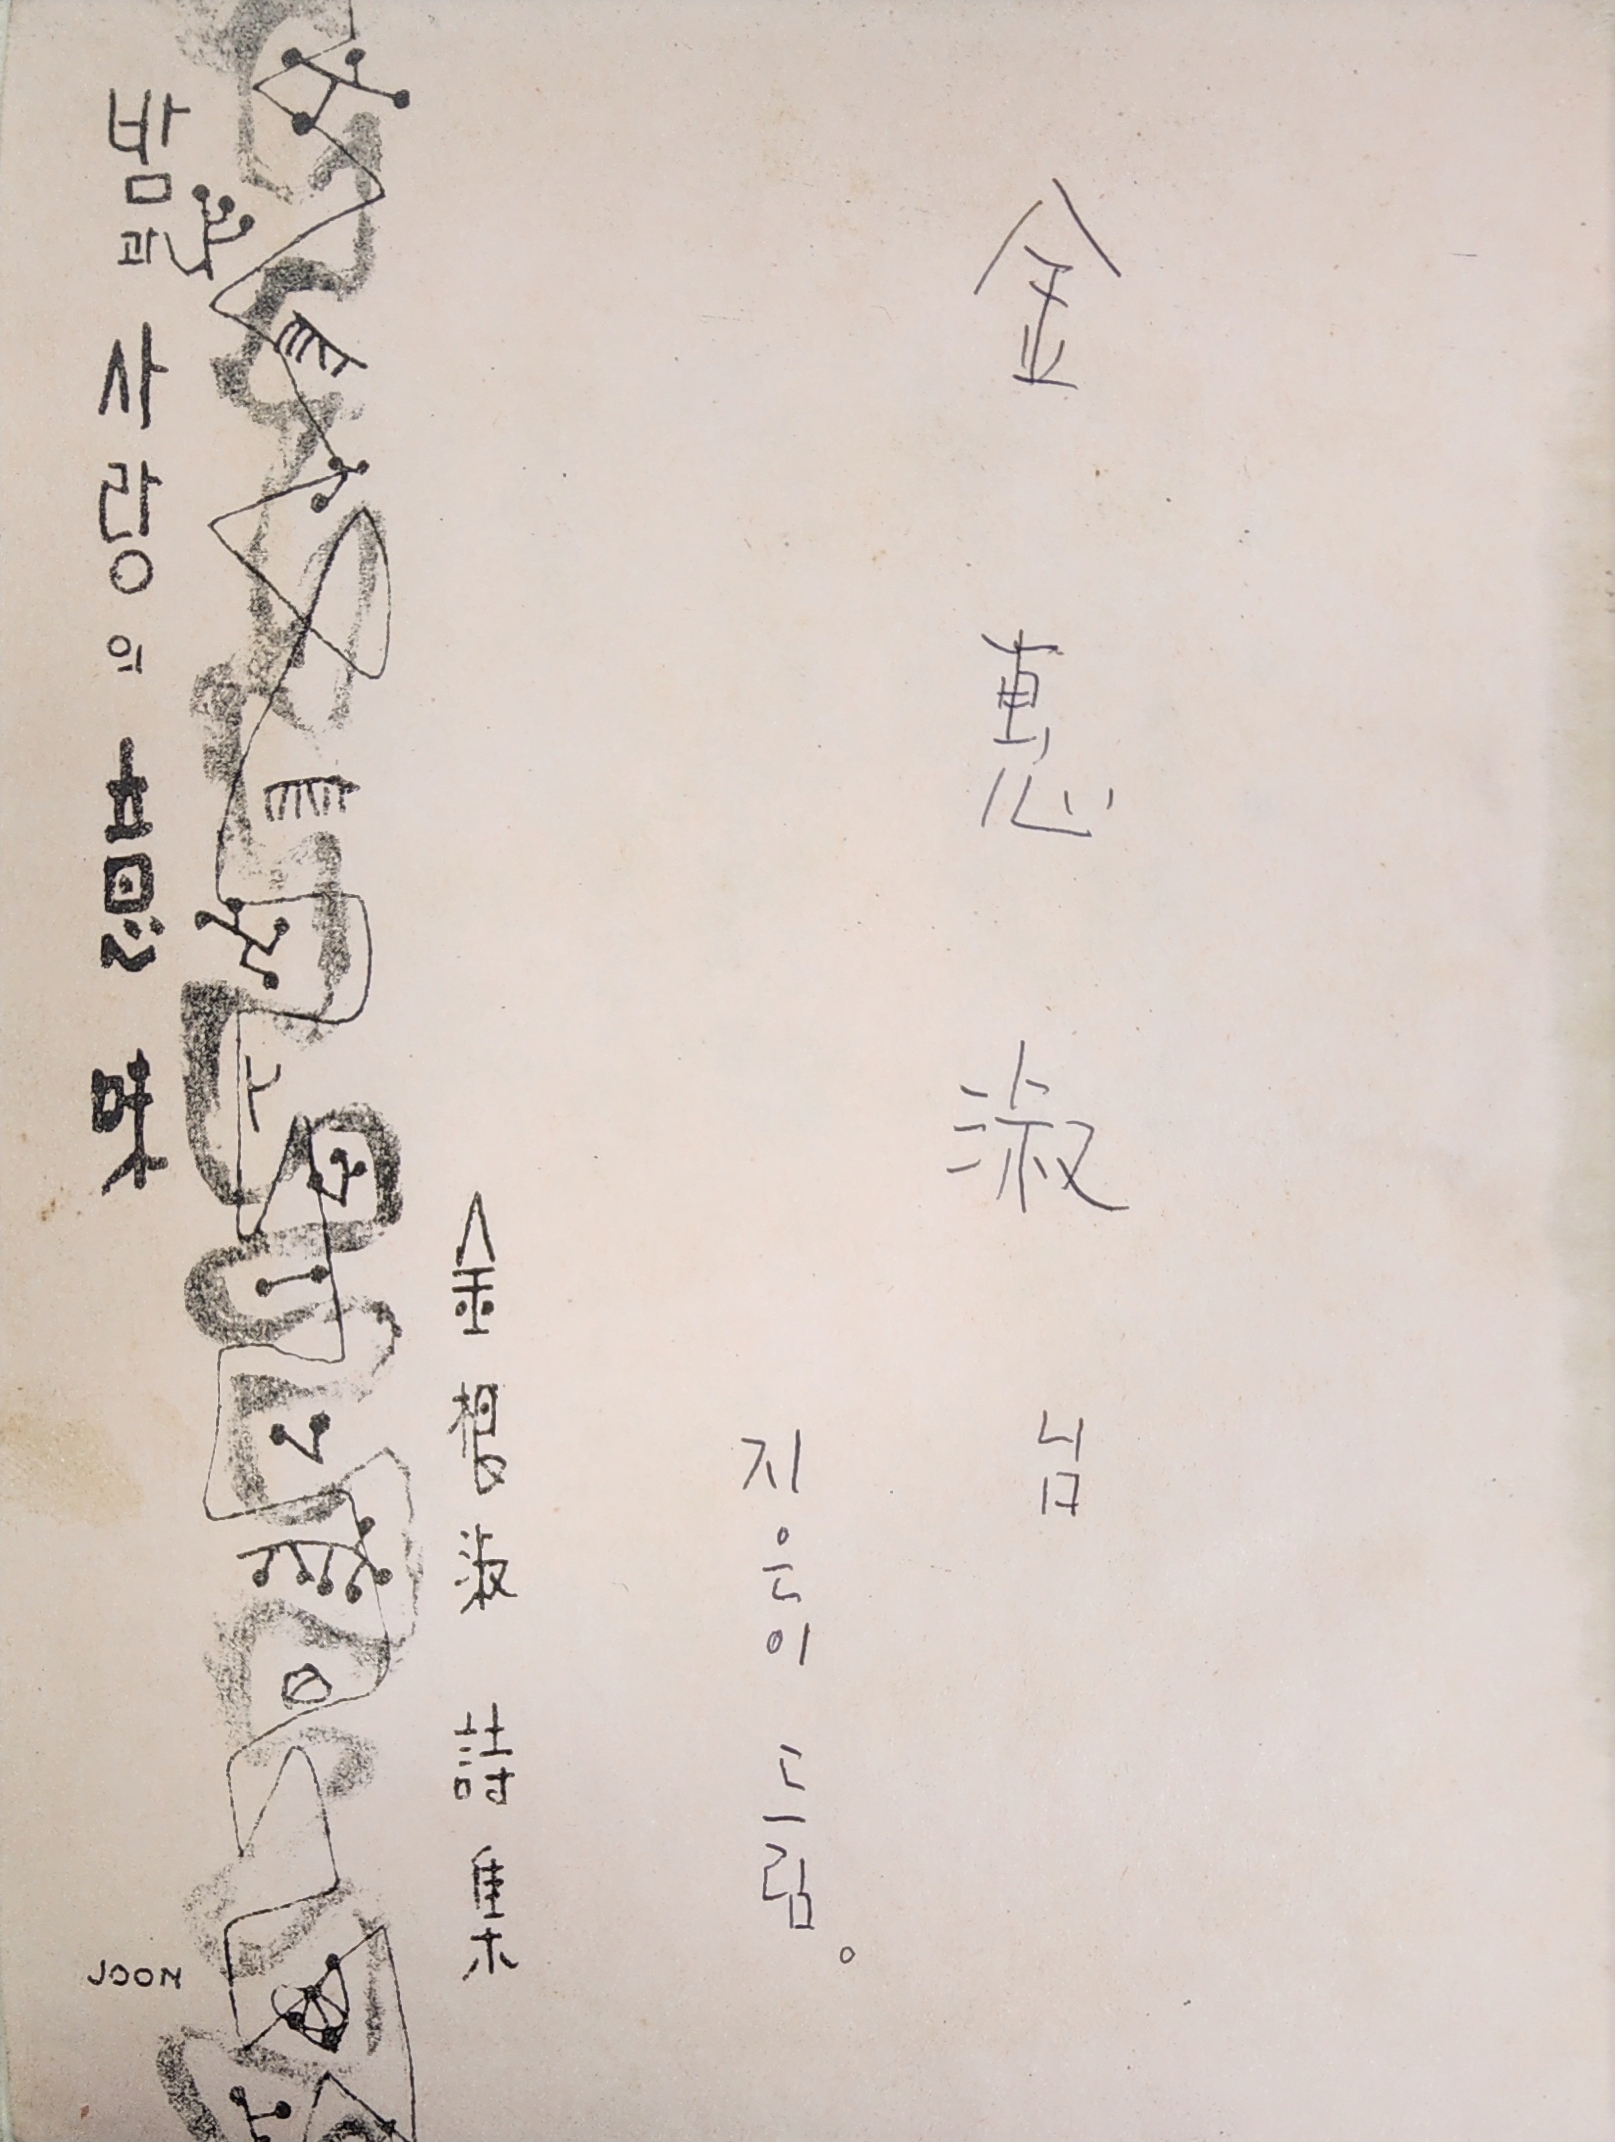 밤과 사랑의 意味
金根淑 詩集
JOON
金惠淑 님
지은이 드림。